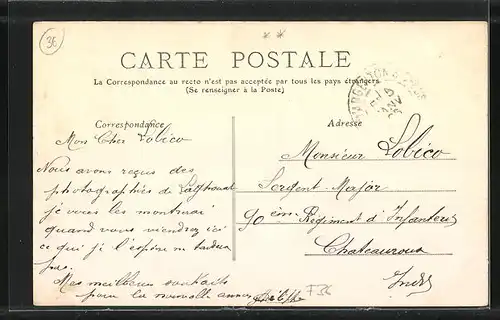 36
CARTE POSTALE
La Correspondance au recto n'est pas acceptée par tous les pays étrangers
(Se renseigner à la Poste)
Correspondance
Mon Cher Lobico
Nous avons reçus des
photographies de Laghouat
je vous les montrerai
quand vous viendrez ici
ce qui je l'espère ne tardera
pas.
Mes meilleurs souhaits
pour la nouvelle année
Adresse
Monsieur Lobico
Sergent-Major
90 ème Régiment d'Infanterie
Chateauroux
Indre
F36